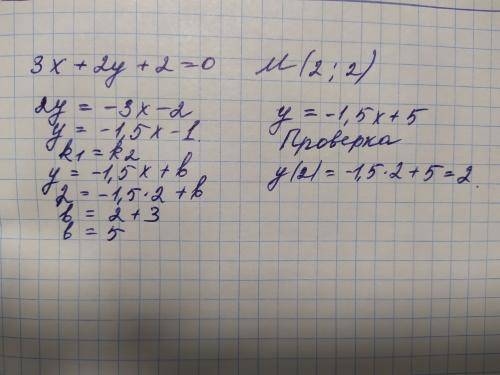 3x + 2y + 2 = 0
2y = -3x - 2
y = -1,5x - 1.
k1 = k2
y = -1,5x + b
2 = -1,5·2 + b
b = 2 + 3
b = 5
M(2; 2)
y = -1,5x + 5
Проверка
y(2) = -1,5·2 + 5 = 2.